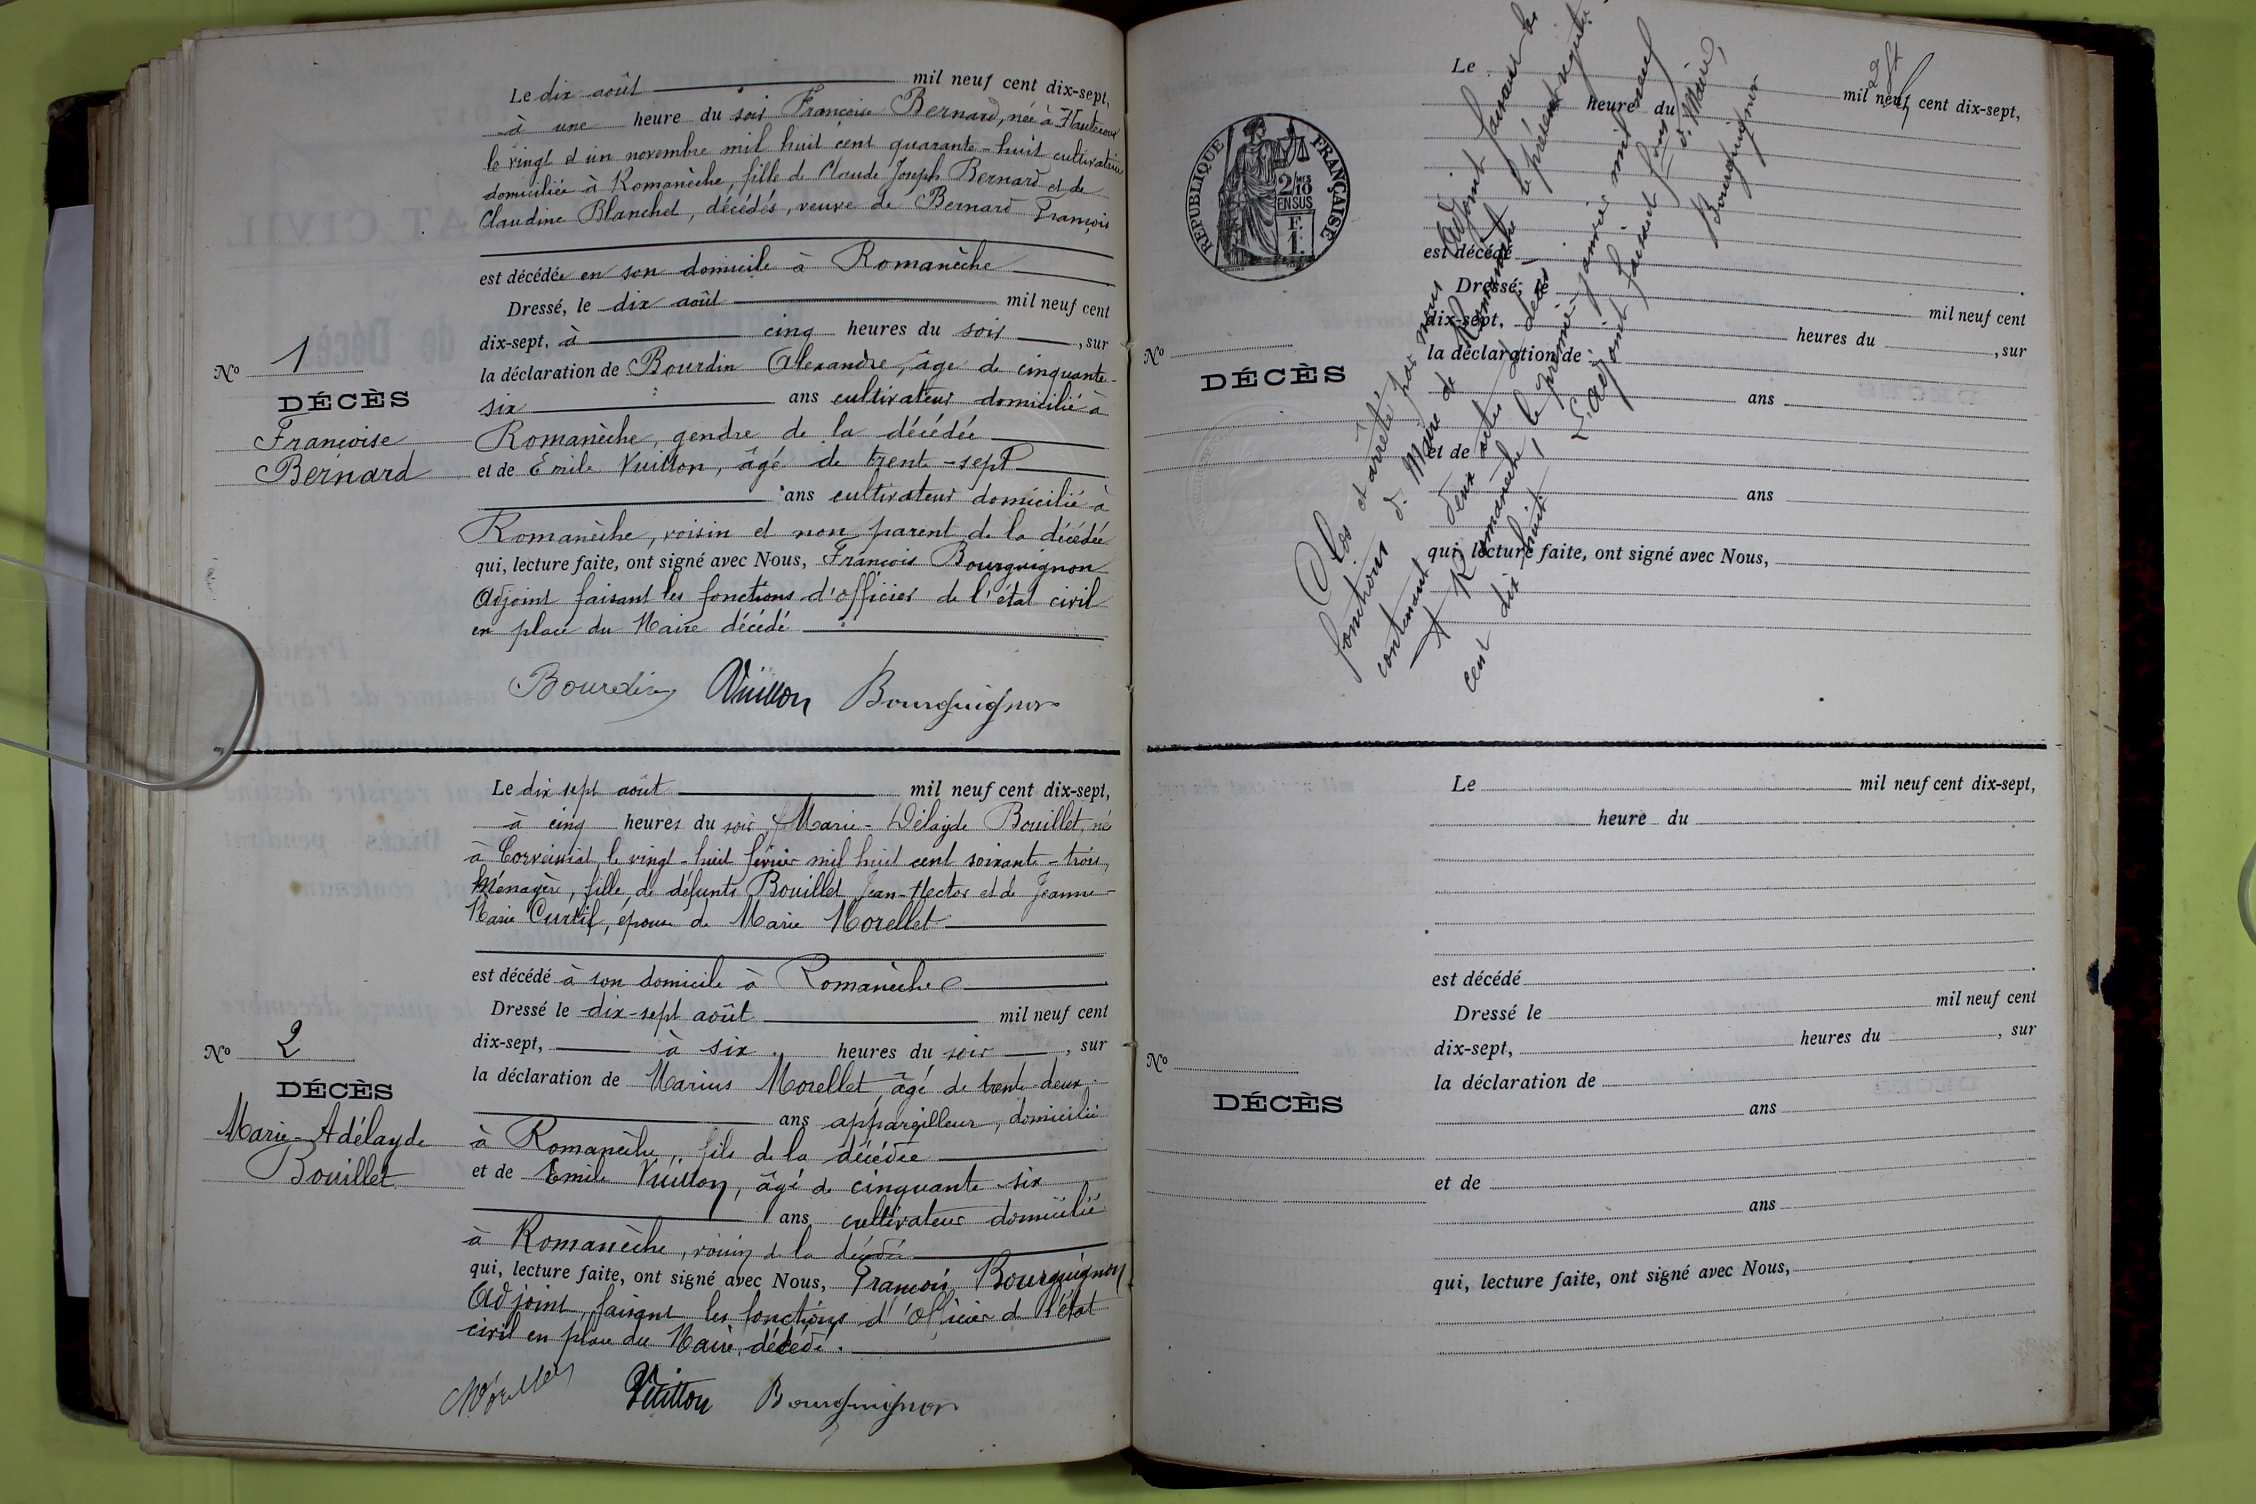 Le dix août mil neuf cent dix-sept,
à une heure du soir Françoise Bernard, née à
le vingt et un novembre mil huit cent quarante-huit cultivatrice
domiciliée à Romanèche, fille de Claude Joseph Bernard et de
Claudine Blanchet, décédés, veuve de Bernard François
est décédée en son domicile à Romanèche
Dressé, le dix août mil neuf cent
dix-sept, à cinq heures du soir, sur
la déclaration de Bourdin Alexandre, âgé de cinquante-
six ans cultivateur domicilié à
Romanèche, gendre de la décédée
et de Emile Vuillon, âgé de trente-sept
ans cultivateur domicilié à
Romanèche, voisin et non parent de la décédée
qui, lecture faite, ont signé avec Nous, François Bourguignon
Adjoint faisant les fonctions d'officier de l'état civil
en place du Maire décédé
Bourdin Vuillon Bourguignon
No 1
DÉCÈS
Françoise
Bernard
Le dix sept août mil neuf cent dix-sept,
à cinq heures du soir, Marie-Délayde Bouillet, né
à Corveissiat, le vingt-huit février mil huit cent soixante-trois,
Ménagère, fille de défunts Bouillet Jean-Hector et de Jeanne-
Marie Curtil, épouse de Marie Morellet
est décédé à son domicile à Romanèche
Dressé le dix-sept août mil neuf cent
dix-sept, à six heures du soir, sur
la déclaration de Marius Morellet, âgé de trente-deux
ans appareilleur, domicilié
à Romanèche, fils de la décédée
et de Emile Vuillon, âgé de cinquante-six
ans cultivateur domicilié
à Romanèche, voisin de la décédée
qui, lecture faite, ont signé avec Nous, François Bourguignon
Adjoint, faisant les fonctions d'officier de l'état
civil en place du Maire, décédé.
Morellet Vuillon Bourguignon
No 2
DÉCÈS
Marie-Adélayde
Bouillet
RÉPUBLIQUE FRANÇAISE
2/10
EN SUS
Le mil neuf cent dix-sept,
heure du
est décédé
Dressé, le mil neuf cent
dix-sept, heures du , sur
la déclaration de
ans
et de
ans
qui, lecture faite, ont signé avec Nous,
No
DÉCÈS
Clos et arrêté par nous Adjoint faisant les
fonctions de Maire de Romanèche le présent registre
contenant deux actes de décès
A Romanèche, le premier janvier mil neuf
cent dix huit
L'adjoint faisant fons de Maire,
Bourguignon
Le mil neuf cent dix-sept,
heure du
est décédé
Dressé le mil neuf cent
dix-sept, heures du , sur
la déclaration de
ans
et de
ans
qui, lecture faite, ont signé avec Nous,
No
DÉCÈS